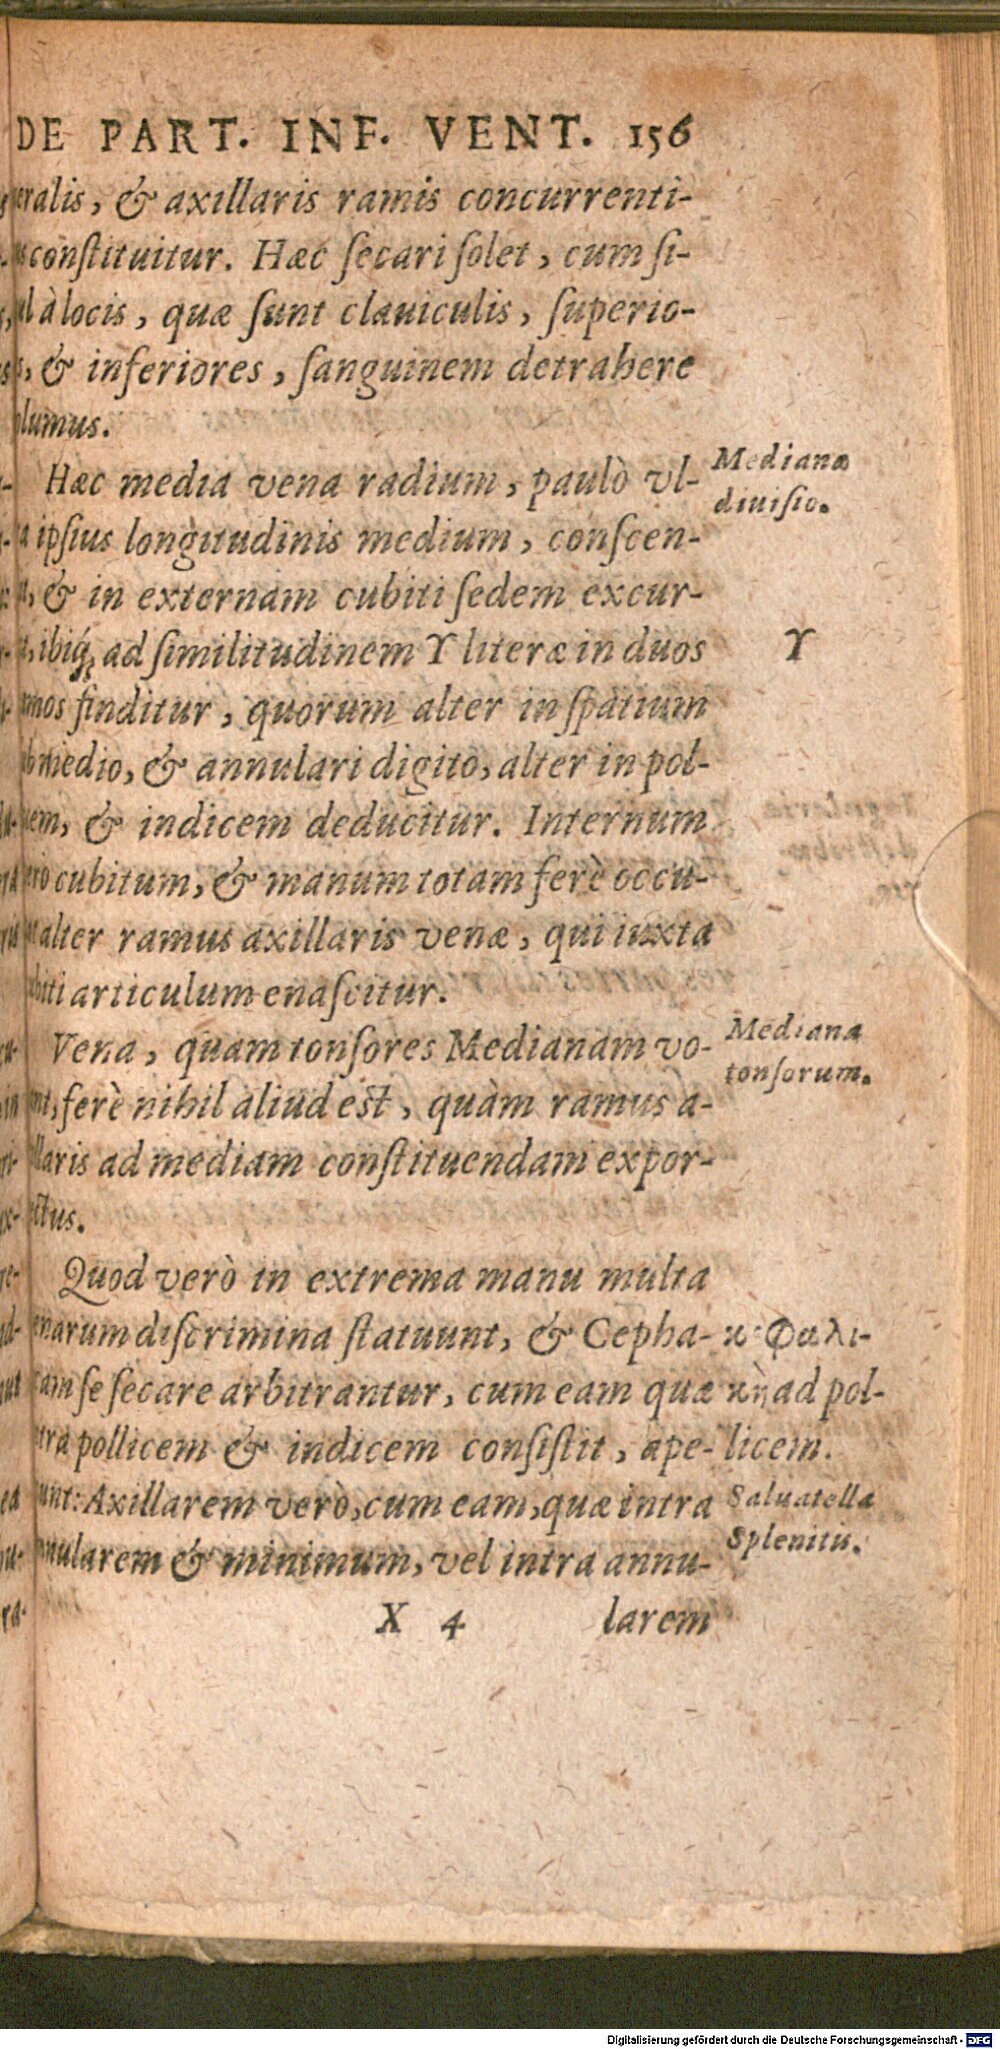 DE PART. INF. VENT. 156
eralis, & axillaris ramis concurrenti-
constituitur. Hæc secari solet, cum si-
à locis, quæ sunt clauiculis, superio-
& inferiores, sanguinem detrahere
lumus.
Hæc media vena radium, paulò vl-
Medianæ
diuisio.
ipsius longitudinis medium, conscen-
& in externam cubiti sedem excur-
ibiq; ad similitudinem Y literæ in duos
Y
mos finditur, quorum alter in spatium
medio, & annulari digito, alter in pol-
em, & indicem deducitur. Internum
cubitum, & manum totam ferè occu-
alter ramus axillaris venæ, qui iuxta
biti articulum enascitur.
Vena, quam tonsores Medianam vo-
Mediana
tonsorum.
ferè nihil aliud est, quàm ramus a-
llaris ad mediam constituendam expor-
ctus.
Quod verò in extrema manu multa
enarum discrimina statuunt, & Cepha-
κεφαλι-
cam se secare arbitrantur, cum eam quæ
κὴ ad pol-
tra pollicem & indicem consistit, ape-
licem.
unt: Axillarem verò, cum eam, quæ intra
Saluatella
Splenitis.
nnularem & minimum, vel intra annu-
X 4 larem
Digitalisierung gefördert durch die Deutsche Forschungsgemeinschaft - DFG